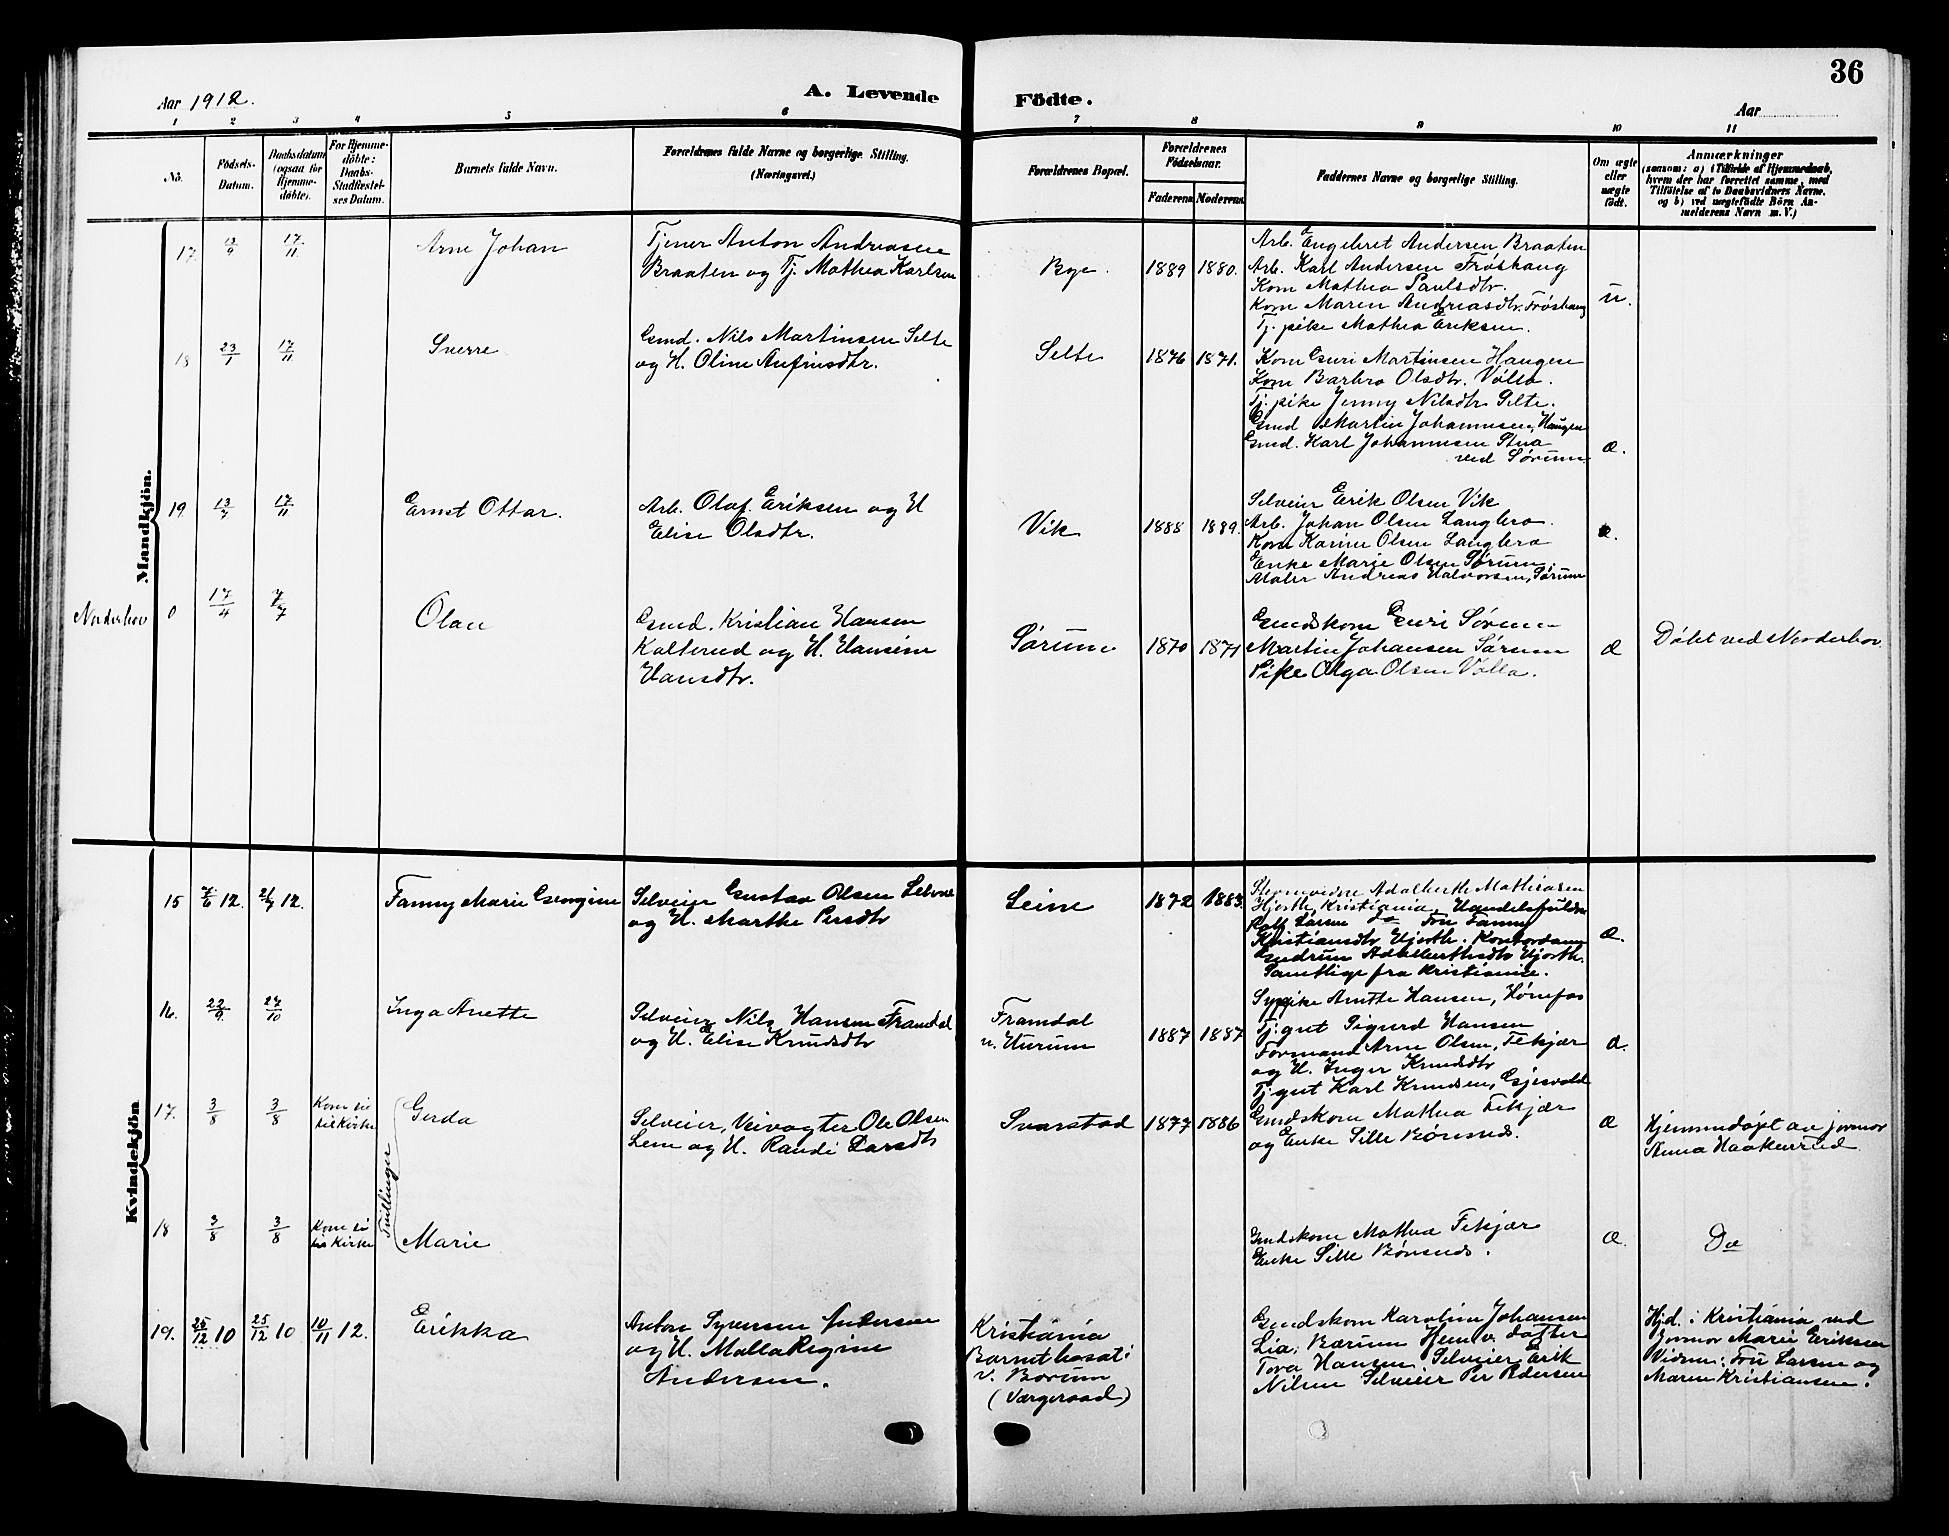 36
Aar 1912.
A. Levende Födte.
Aar
1 2 3 4 5 6 7 8 9 10 11
No.
Födsels-Datum.
Daabsdatum (ogsaa for Hjemme-döbte).
For Hjemme-döbte: Daabs-Stadfæstel-ses Datum.
Barnets fulde Navn.
Forældrenes fulde Navne og borgerlige Stilling.
(Næringsvei.)
Forældrenes Bopæl.
Forældrenes Födselsaar.
Faderens Moderens
Faddernes Navne og borgerlige Stilling.
Om ægte eller uægte födt.
Anmærkninger
(saasom: a) i Tilfælde af Hjemmedaab,
hvem der har forrettet samme, med
Tilföielse af to Daabsvidners Navne,
og b) ved uægtefödte Börn An-
melderens Navn m. V.)
Mandkjön.
17 13/9 17/11
Arne Johan
Tjener Anton Andreasen
Braaten og Tj. Mathea Karlsen
Bye.
1889 1880.
Arb. Engebret Andersen Braaten
Arb. Karl Andersen Frøshaug
Kom Mathea Paulsdtr.
Kom Maren Andreasdtr. Frøshaug
Tj. pike Mathea Eriksen.
u.
18 23/1 17/11
Sverre
Gmd. Nils Martinsen Selte
og H. Oline Anfinsdtr.
Selte
1876 1871.
Kom Guri Martinsen Haugen
Kom Barbro Olsdtr. Volla.
Tj. pike Jenny Nilsdtr Selte.
Gmd Martin Johannesen, Haugen
Gmd. Karl Johannesen Stua
ved Sørum
æ.
19 13/7 17/11
Ernst Ottar.
Arb. Olaf Eriksen og H
Elise Olsdtr.
Vik
1888 1889.
Selveier Erik Olsen Vik
Arb. Johan Olsen Langbro.
Kom Karine Olsen Langbro
Enke Marie Olsen Sørum
Maler Andreas Halvorsen, Sørum
æ.
Norderhov 0 17/4 7/7
Olav
Gmd. Kristian Hansen
Kolterud og H. Hansine
Hansdtr.
Sørum
1870 1871
Gmdskom Guri Sørum
Martin Johansen Sørum
Pike Olga Olsen Volla.
æ
Døbt ved Norderhov.
Kvindekjön
15 7/6 12. 21/7 12.
Fanny Marie Georgine
Selveier Gustav Olsen
og H. Marthe Persdtr
Seine
1872 1883.
Adalberth Mathiasen
Hjorth, Kristiania. Handelsfuldm
Rolf Larsen do Fru Fanny
Kristiansdtr Hjorth. Kontordame
Gudrun Adalberthsdtr Hjorth.
Samtlige fra Kristiania.
æ.
16. 22/9 27/10
Inga Anette
Selveier Nils Hansen Framdal
og H. Elise Knudsdtr
Framdal
u. Hurum
1887 1887
Sypike Anette Hansen, Hønefos
Tj. gut Sigurd Hansen
Formand Arne Olsen, Fekjær
og H. Inger Knudsdtr
Tj. gut Karl Knudsen, Gjesvold
æ.
17. 3/8 3/8
Kom ei
til Kirke
Tvillinger
Gerda
Selveier, Veivogter Ole Olsen
Lem og H. Randi Larsdtr
Svarstad
1877 1886
Gmdskom Mathea Fekjær
og Enke Sille Børsnes.
æ
Hjemmedøpt av jormor
Anna Haakenstad
18 3/8 3/8
Kom ei
til Kirke
Marie
Gmdskom Mathea Fekjær
Enke Sille Børsnes.
æ.
Do
19. 25/12 10 25/12 10 10/11 12.
Erikka
Anton Syversen Andersen
og H. Malla Regine
Andersen.
Kristiania
Barnet bosat i
v. Borum
(Værgeraad)
Gmdskom Karoline Johansen
Lia, Bærum Hjem v. datter
Tora Hansen, Selveier Erik
Nilsen Selveier Per Pedersen
Hjd. i Kristiania ved
Jormor Marie Eriksen
Vidner: Fru Larsen og
Maren Kristiansen.